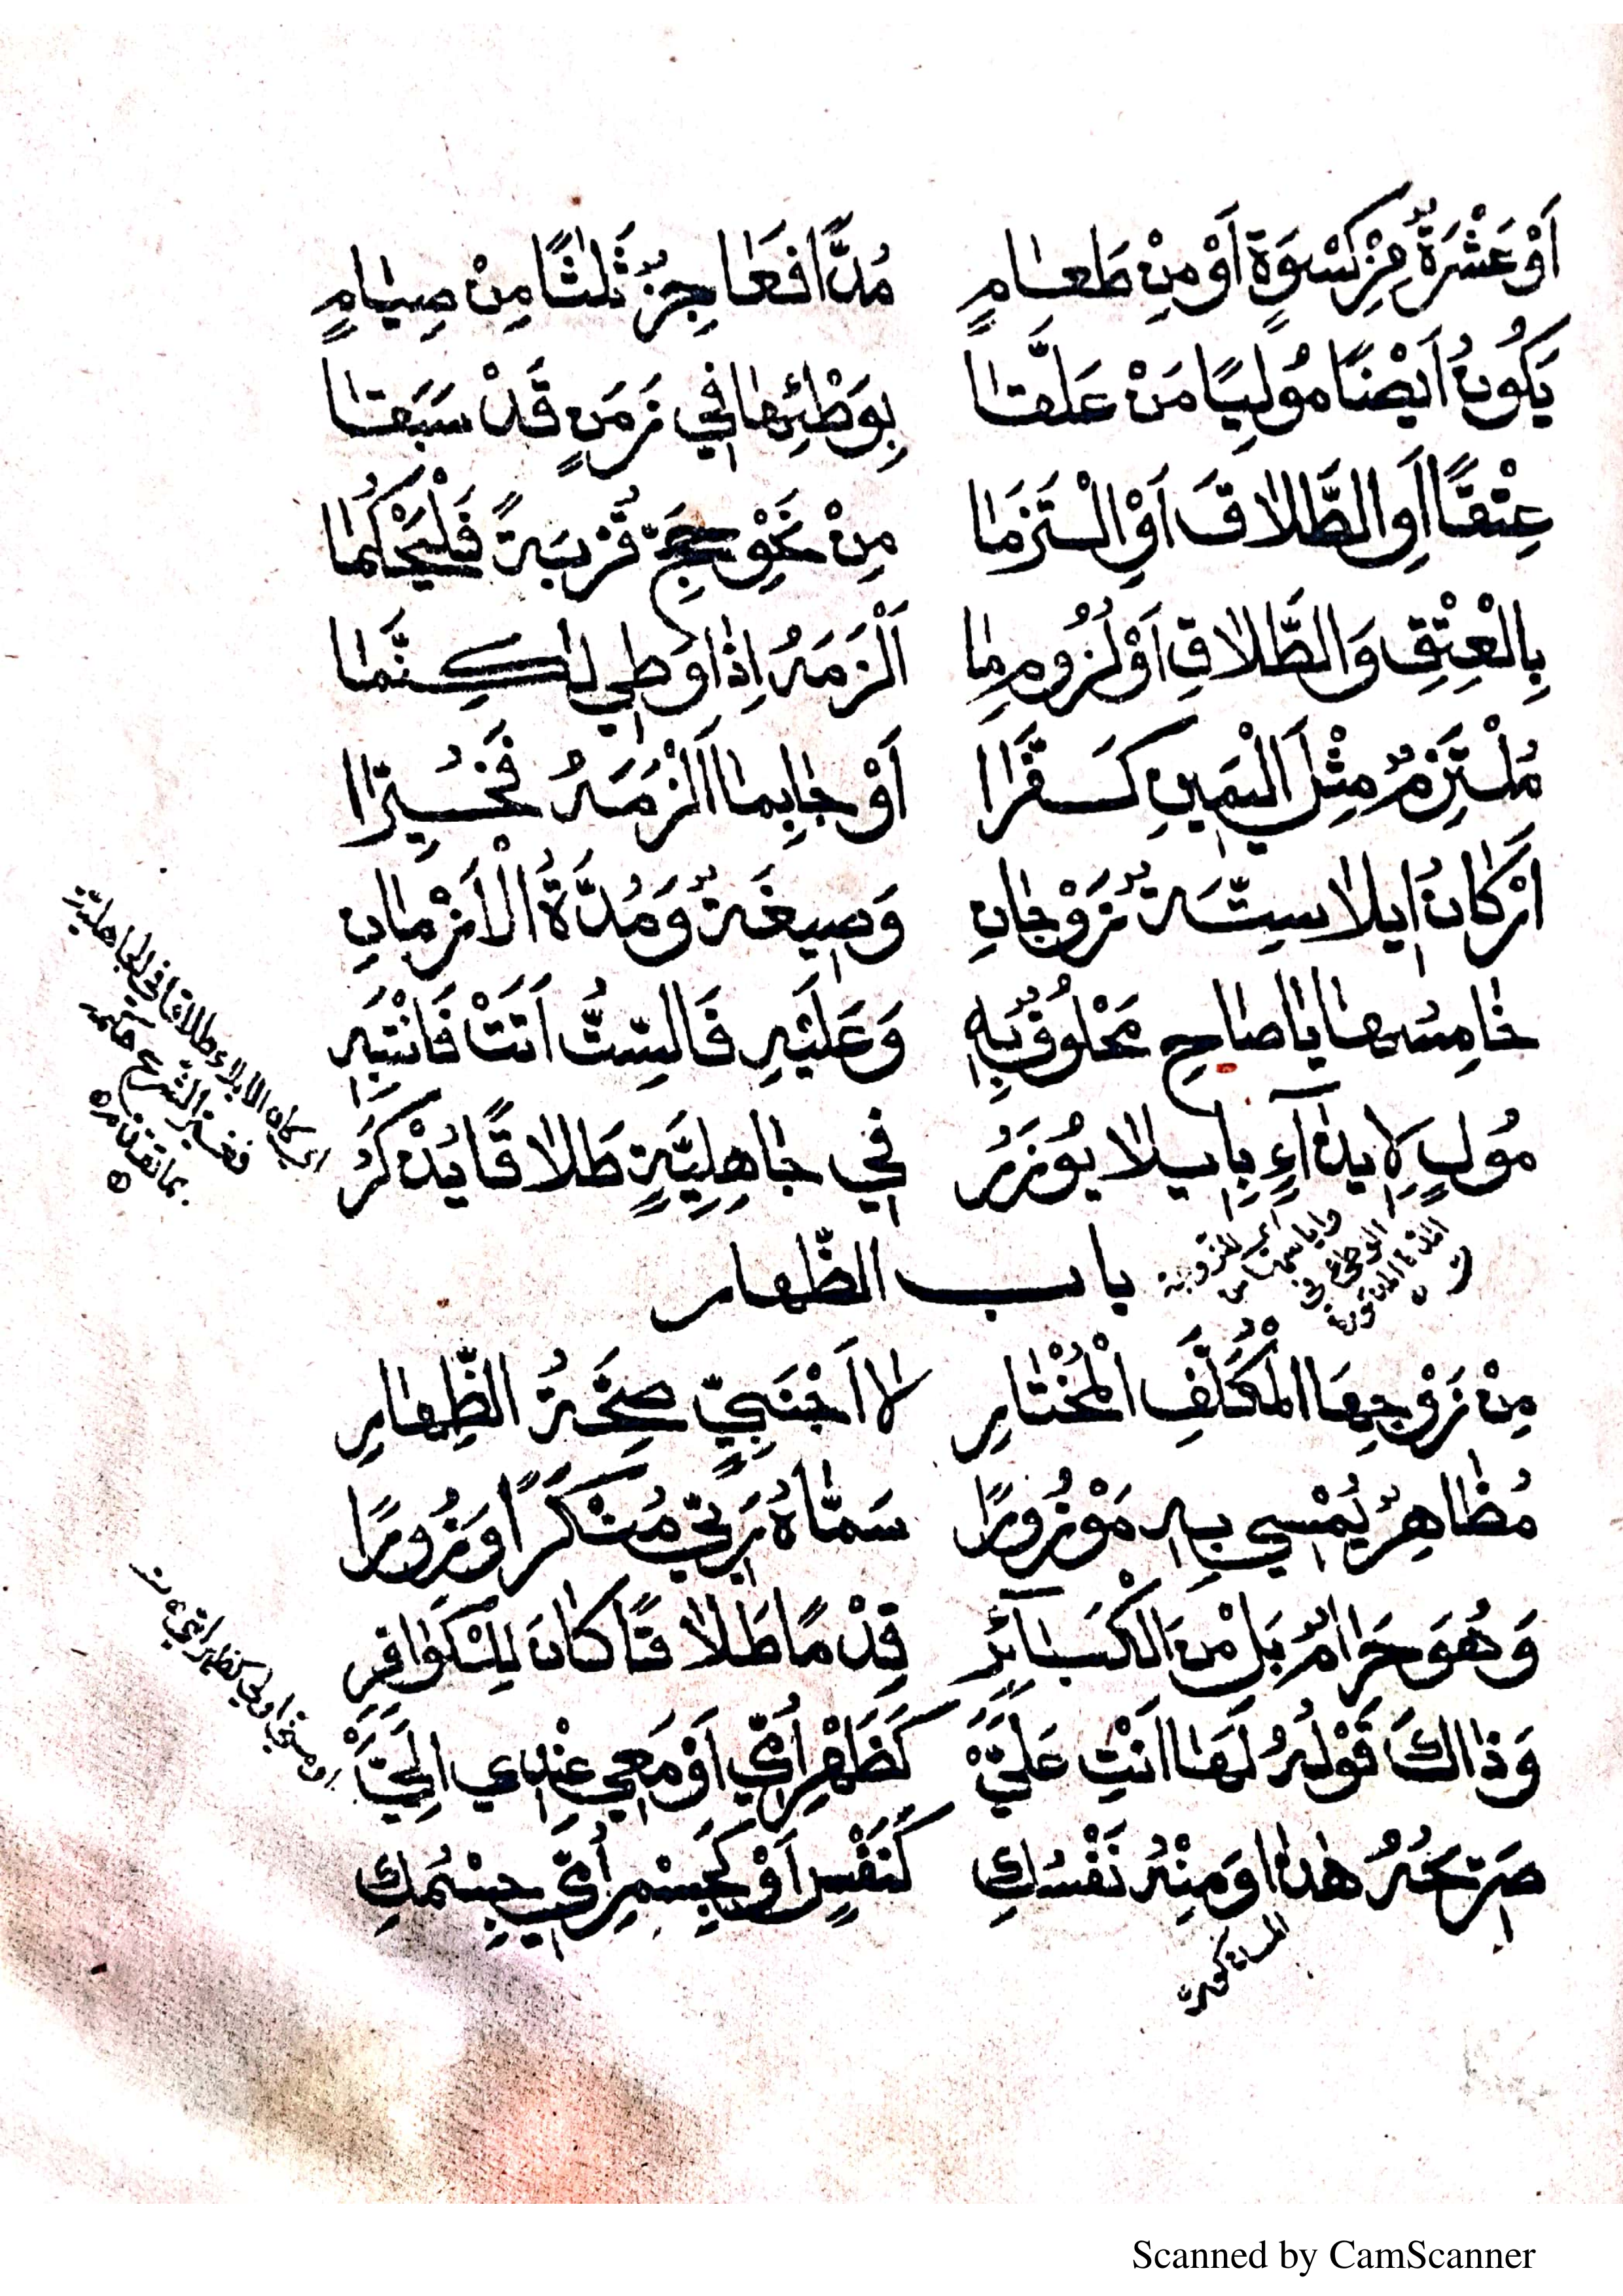 اَوْ عَشْرَةٌ مِنْ كِسْوَةٍ اَوْ مِنْ طَعَامٍ مُدًّا فَعَاجِزٌ ثَلٰثًا مِنْ صِيَامٍ
يَكُونُ اَيْضًا مُولِيًا مَنْ عَلَّقَا بِوَطْئِهَا فِي زَمَنٍ قَدْ سَبَقَا
عِتْقًا اَوِ الطَّلَاقَ اَوْ اِلْتَزَمَا مِنْ نَحْوِ حَجٍّ قُرْبَةً فَلْيُحْكَمَا
بِالْعِتْقِ وَالطَّلَاقِ اَوْ لُزُومِ مَا اَلْزَمَهُ اِذَا وَطِي لٰكِنَّمَا
مُلْتَزِمٌ مِثْلَ الْيَمِينِ كَفَّرَا اَوْ جَا بِمَا اَلْزَمَهُ فَخُيِّرَا
اَرْكَانُ اِيلَا سِتَّةٌ زَوْجَانِ وَصِيغَةٌ وَمُدَّةُ الْاَزْمَانِ
خَامِسُهَا يَا صَاحِ مَحْلُوفٌ بِهِ وَعَلَيْهِ فَالسِّتُّ اَتَتْ فَانْتَبِهِ
مُولٍ لِاِيذَآءٍ بِاِيلَا يُوزَرُ فِي جَاهِلِيَّةٍ طَلَاقًا يُذْكَرُ
اي كان الايلاء طلاقا في الجاهلية
فغير الشرع حكمه
بما تقدم
باب الظهار
مِنْ زَوْجِهَا الْمُكَلَّفِ الْمُخْتَارِ لَا اَجْنَبِيٍّ صِحَّةُ الظِّهَارِ
مُظَاهِرٌ يُمْسِي بِهِ مَوْزُورًا سَمَّاهُ رَبِّي مُنْكَرًا وَزُورًا
وَهُوَ حَرَامٌ بَلْ مِنَ الْكَبَآئِرِ قِدْمًا طَلَاقًا كَانَ لِلْكَوَافِرِ
وَذَاكَ قَوْلُهُ لَهَا اَنْتِ عَلَيَّهْ كَظَهْرِ اُمِّي اَوْ مَعِي عِنْدِي اِلَيَّهْ
صَرِيحُهُ هٰذَا وَمِنْهُ نَفْسُكِ كَنَفْسٍ اَوْ كَجِسْمِ اُمِّي جِسْمُكِ
Scanned by CamScanner